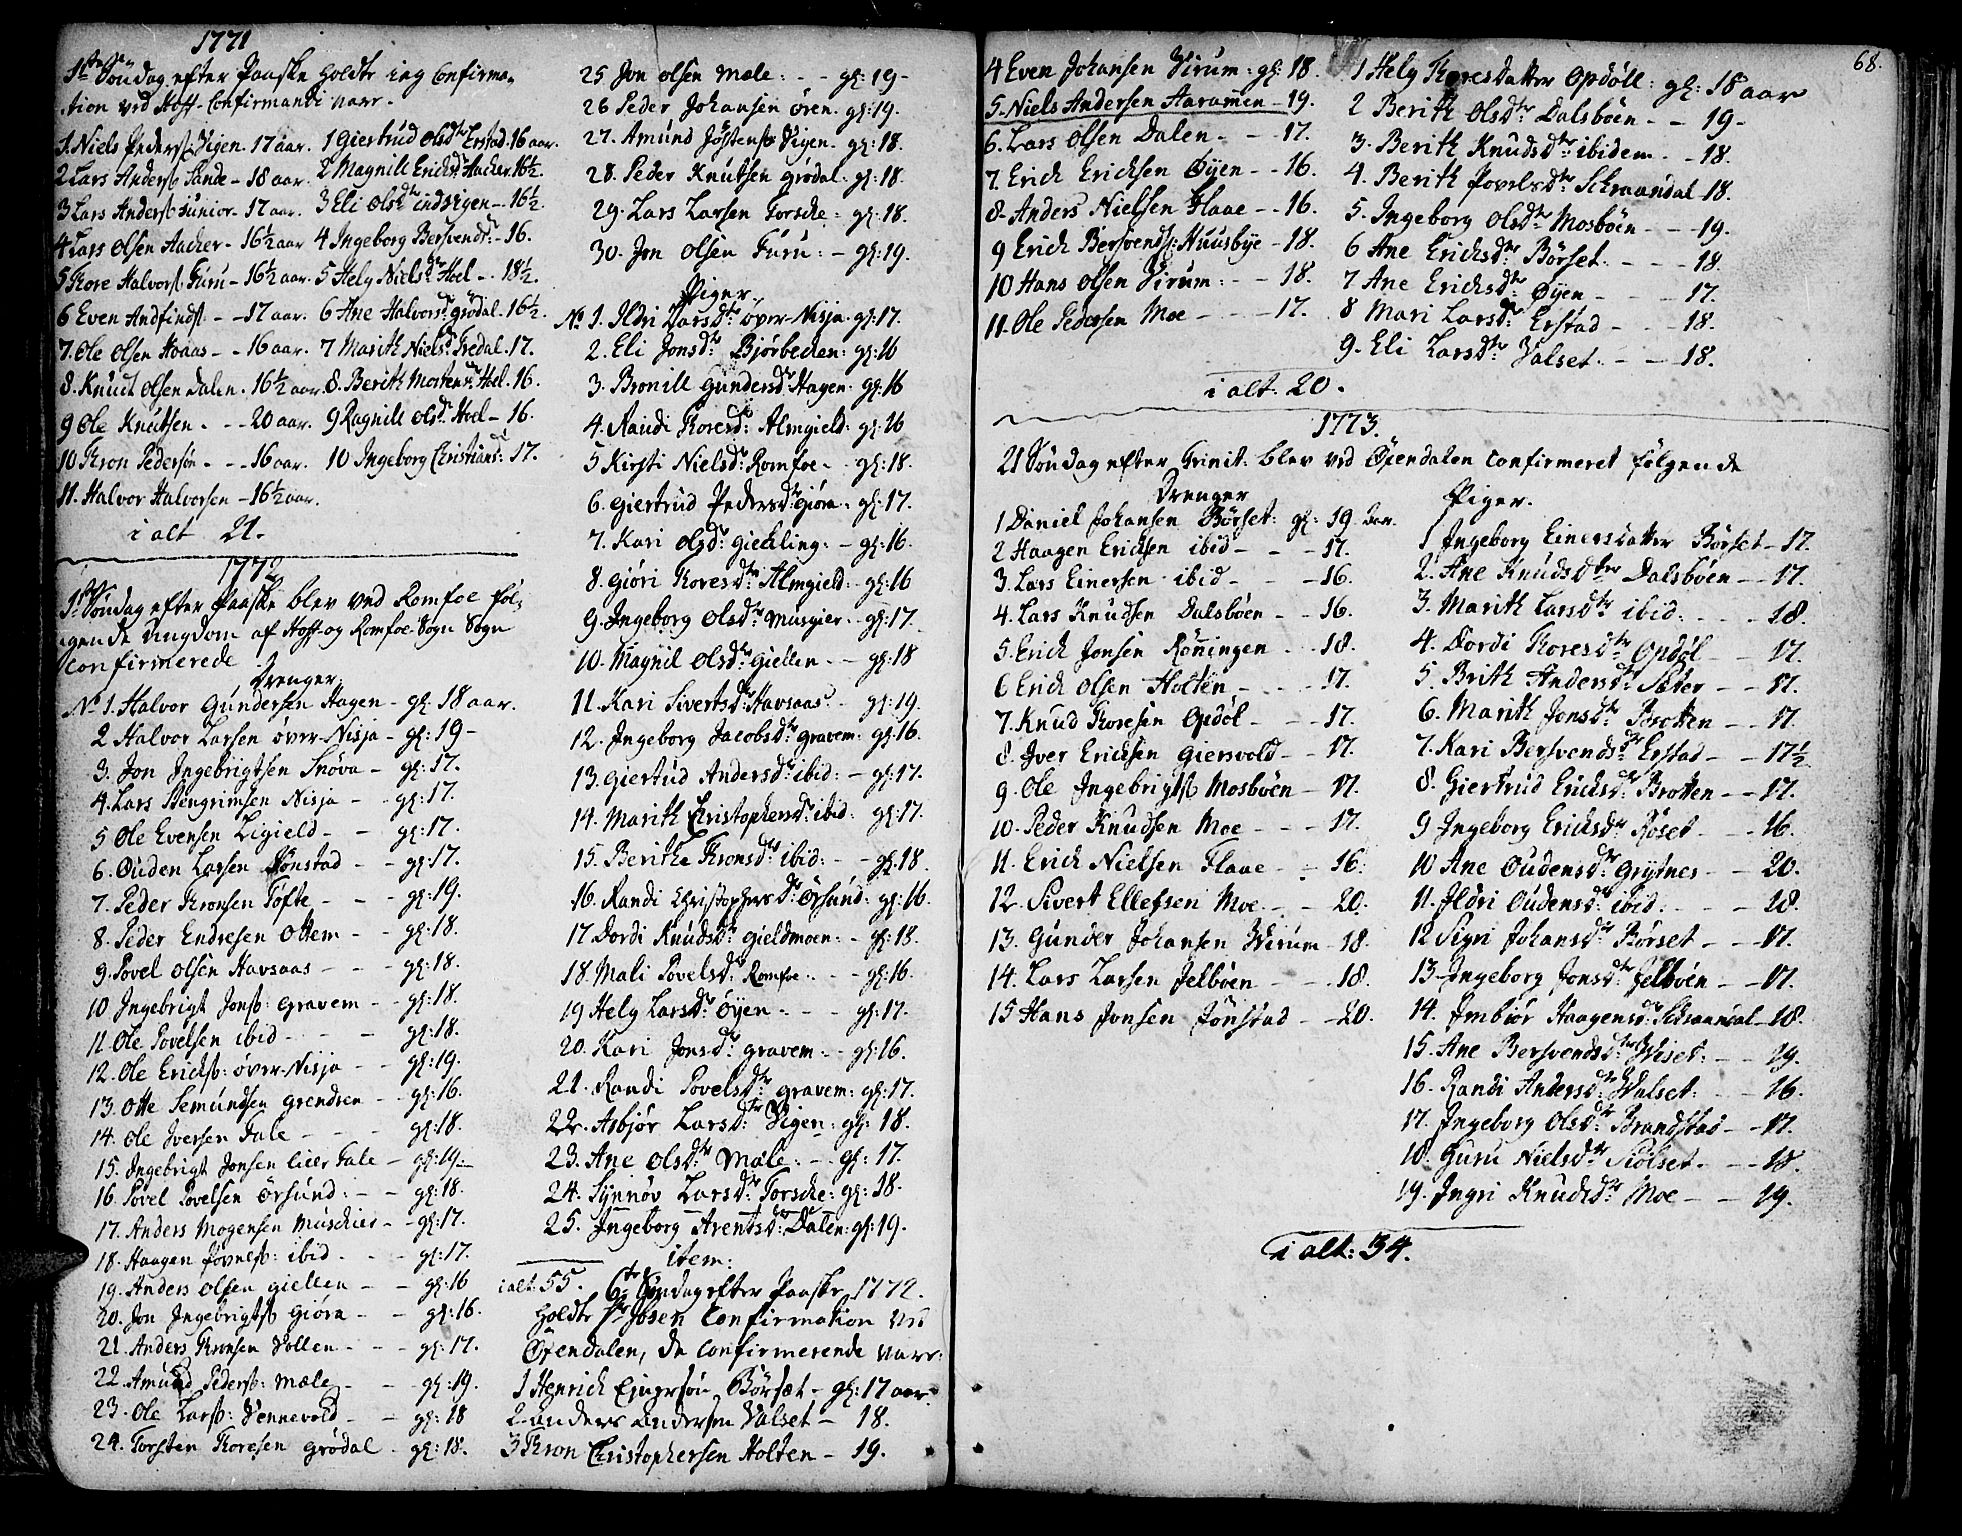 1771
1ste Søndag efter Paaske holdte ieg Confirma-
tion ved Hoff. Confirmandi vare.
1. Niels Peders: Vigen. 17 aar.
2 Lars Anders: Sande - 18 aar.
3 Lars Anders: Junior - 17 aar.
4 Lars Olsen Aacher - 16½ aar
5 Tore Halvors: Furu - 16½ aar.
6 Even Andfinds: - - 17 aar.
7. Ole Olsen Hoaas - - 16 aar.
8. Knut Olsen Dalen. 16½ aar.
9 Ole Knutsen. - - 20 aar.
10 Tron Pedersøn - - - 16 aar.
11. Halvor Halvorsen - 16½ aar.
1 Giertrud Olsdtr Erstad. 16 aar.
2 Magnill Erichsdr: Aacher 16½.
3 Eli Olsdtr indvigen - 16½
4 Ingeborg Bersvendsdr: - 16.
5 Helg Nielsdr Hoel - 18½.
6 Ane Halvorsdr: Grødal. 16½.
7 Marith Nielsdr Fredal. 17.
8. Berith Mortensdr Hoel. 16.
9 Ragnill Olsdr Hoel - 16.
10 Ingeborg Christiansdr: 17.
i alt 21.
1772
1te Søndag efter Paaske blev ved Romfoe føl-
gende Ungdom af Hoff- og Romfoe-Sogn Sogn
Confirmerede.
Drenger
No 1. Halvor Gundersen Hagen - gl: 18 aar.
2 Halvor Larsen øver-Nisja - gl: 19 -
3. Jon Ingebrigtsen Snøva - gl: 17.
4. Lars Stengrimsen Nisja - gl: 17.
5 Ole Evensen Ligield - - gl: 17.
6. Ouden Larsen Jønstad - - gl: 17.
7. Peder Tronsen Tøfte - - gl: 19.
8. Peder Endresen Ottem - - gl: 18.
9. Povel Olsen Havsaas - - - gl: 18.
10 Ingebrigt Jons: Gravem - - gl: 18.
11. Ole Povelsen ibid - - - gl: 18.
12. Ole Erichs: øver-Nisja - - gl: 19.
13. Otte Semundsen Grendsen - - gl: 16.
14. Ole Iversen Fale - - - gl: 18.
15. Ingebrigt Jonsen lier Fale - gl: 19.
16. Povel Povelsen Ørsund: - - gl: 18.
17. Anders Mogensen Muschier - - gl: 17.
18. Haagen Povels: ibid. - - - gl: 17.
19. Anders Olsen Giellen - - gl: 16
20. Jon Ingebrigts: Giøra - - gl: 16.
21. Anders Tronsen Vollen - - - gl: 17.
22. Amund Peders: Mæle - - - gl: 19.
23. Ole Lars: Vennevold - - gl: 18
24. Torsten Toresen Grødal. gl: 18.
25 Jon Olsen Mæle: - - gl: 19 -
26 Peder Johansen Øren. gl: 19.
27. Amund Jøstens: Vigen. gl: 18.
28. Peder Knutsen Grødal. gl: 18.
29. Lars Larsen Torsche: gl: 18.
30. Jon Olsen Furu: - gl: 19.
Piger.
No 1. Ildri Larsdtr: øver-Nisja. gl: 17.
2. Eli Jonsdr: Bjørbechen: gl: 16
3. Bronill Gundersdr: Hagen: gl: 16
4. Randi Toresdr: Almgield: gl: 16
5 Kirsti Nielsdr: Romfoe - gl: 18.
6. Giertrud Pedersdr: Giøra: gl: 17.
7. Kari Olsdr: Giechling: - gl: 16.
8. Giøri Toresdtr: Almgield: - gl: 16
9. Ingeborg Olsdtr: Musgier - gl: 17.
10. Magnil Olsdtr: Giellen - - gl: 18
11. Kari Sivertsdr: Havsaas: gl: 19.
12. Ingeborg Jacobsdtr: Gravem: gl: 16.
13. Giertrud Andersdr: ibid: - gl: 17.
14. Marith Christophersdr: ibid: gl: 17.
15. Berithe Tronsdr: ibid: - - gl: 18.
16. Randi Christophersdr: Ørsund: gl: 16.
17 Dordi Knudsdr: Gieldmoen: - gl: 18.
18. Mali Povelsdr: Romfoe - - gl: 16.
19 Helg Larsdr: Øyen - - - gl: 17.
20. Kari Jonsdr: Gravem: - gl: 16.
21. Randi Povelsdtr: Gravem: gl: 17.
22. Asbjør Larsdtr: Vigen: gl: 18.
23. Ane Olsdtr: Mæle: - - gl: 17.
24. Synnøv Larsdtr: Torsche: gl: 18.
25. Ingeborg Arentsdr: Dalen: gl: 19.
item:
i alt 55. 6te Søndag efter Paaske 1772.
holdte Hr Josen Confirmation ved
Øxendalen, da Confirmerende vare:
1 Henrich Ejnersøn Børset - gl: 17 aar.
2. Anders Andersen Valset - 18.
3 Tron Christophersen Holten - 19.
68.
4 Even Johansen Virum: gl: 18.
5. Niels Andersen Aaramen - 19.
6. Lars Olsen Dalen - - 17.
7. Erich Erichsen Øyen - - 16.
8. Anders Nielsen Flaae - - 16.
9 Erich Bersvends: Huusbye - 18.
10 Hans Olsen Virum: - - 18.
11. Ole Pedersen Moe - - - 17.
1 Helg Toresdatter Opdøll: gl: 18 aar
2 Berith Olsdtr: Dalsbøen - - 19 -
3. Berith Knudsdtr: ibidem - - 18.
4. Berith Povelsdtr: Schraandal - 18.
5. Ingeborg Olsdtr: Mosbøen - - - 19.
6 Ane Erichsdtr: Børset. - - - 18.
7 Ane Erichsdtr: Øyen - - - 17.
8 Mari Larsdr: Erstad - - - 18.
9. Eli Larsdtr: Valset. - - - 18.
i alt. 20.
1773.
21 Søndag efter Trinit: blev ved Øxendalen Confirmeret følgende
Drenger
1 Daniel Johansen Børset: gl: 19 aar.
2 Haagen Erichsen ibid - - - 17.
3. Lars Einersen ibid - - - 16.
4. Lars Knudsen Dalsbøen - - 16.
5. Erich Jonsen Rønningen - - 18.
6 Erich Olsen Holten - - - 17.
7. Knud Toresen Opdøl - - - 17.
8. Iver Erichsen Giersvold - - 17.
9. Ole Ingebrigts: Mosbøen - 17.
10. Peder Knudsen Moe - - - 17.
11. Erich Nielsen Flaae - - 16.
12. Sivert Ellefsen Moe - - 20.
13. Gunder Johansen Wirum - 18.
14. Lars Larsen Jelbøen - - 18.
15 Hans Jonsen Jønstad - - 20.
Piger.
1 Ingeborg Einersdatter Børset - 17.
2. Ane Knudsdtr Dalsbøen - - 17.
3. Marith Larsdtr ibid: - - - 18.
4. Dordi Toresdtr Opdøl - - 17.
5. Brith Andersdr: Sæter - - 17.
6. Marith Jonsdtr Brotten - - 17.
7. Kari Bersvendsdtr: Erstad - - 17½
8. Giertrud Erichsdtr: Brotten - - 17.
9 Ingeborg Erichsdtr Røset - - 16.
10 Ane Oudensdtr: Grytnes - - 20.
11. Ildri Oudensdtr: ibid: - - - 18.
12 Sigri Johansdtr Børset - - - 17.
13. Ingeborg Jonsdtr: Jelbøen - - 17.
14. Imbiør Haagensdr: Schraandal - 18.
15. Ane Bersvendsdtr: Wiset: - - 19.
16. Randi Andersdtr: Walset: - - 16.
17. Ingeborg Olsdtr: Brandstad - - 17.
18. Guru Nielsdtr Siølset. - - 18.
19. Ingri Knudsdtr: Moe - - - 19.
i alt: 34.